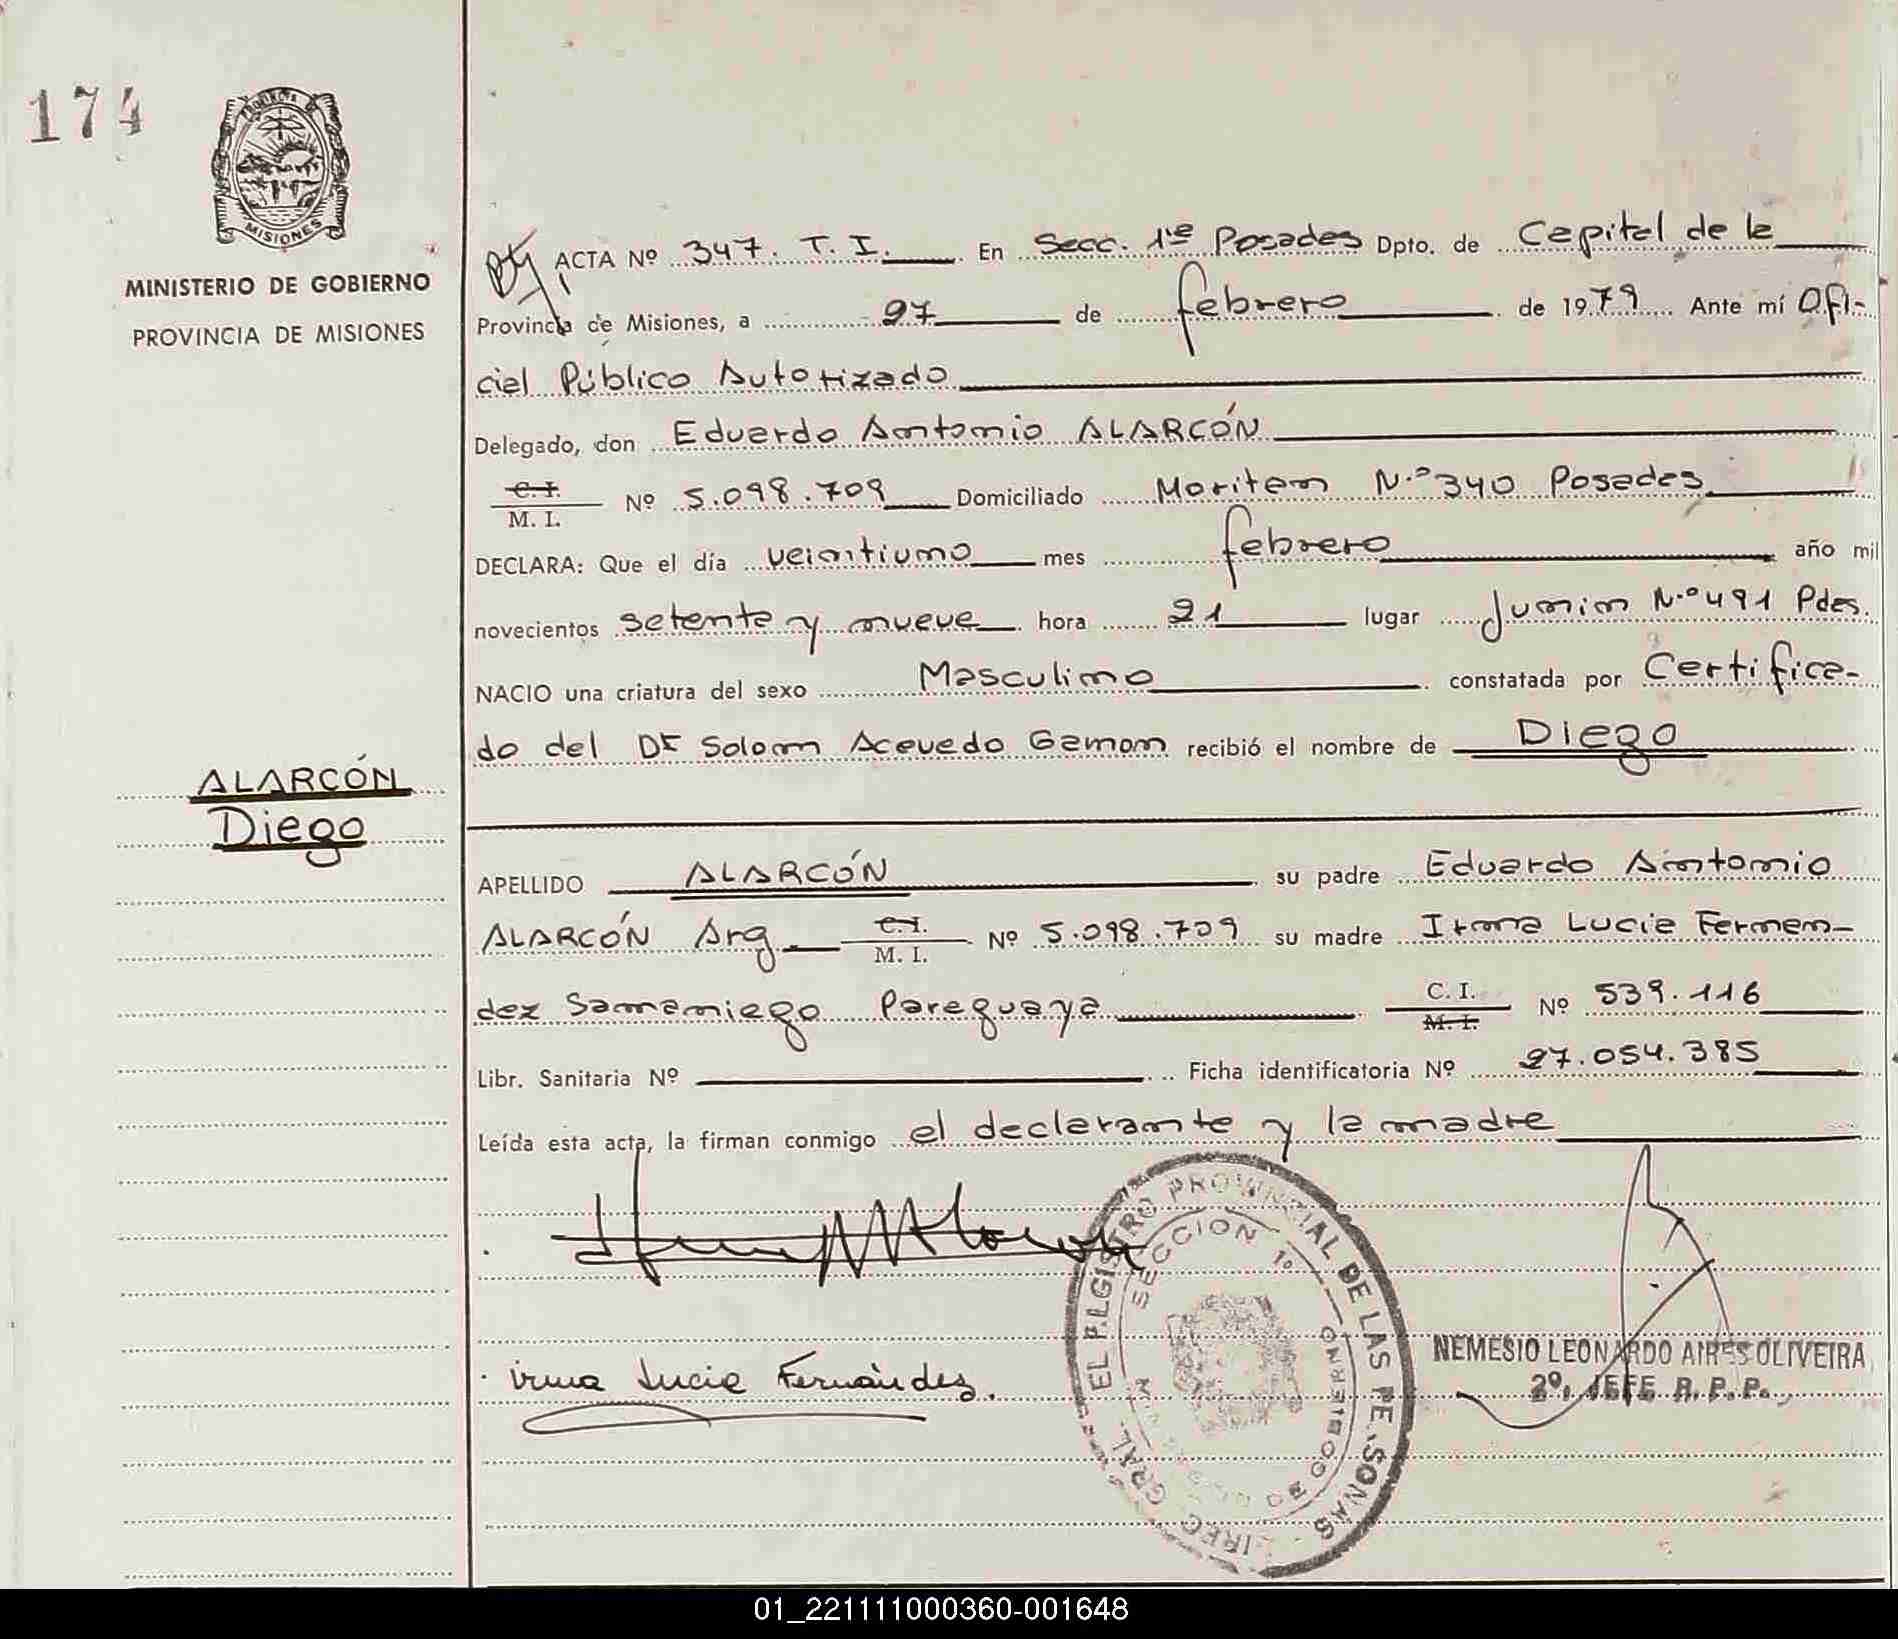 174
PROVINCIA DE
MISIONES
MINISTERIO DE GOBIERNO
PROVINCIA DE MISIONES
ACTA Nº 347. T. I. En Secc. 1ra Posadas Dpto. de Capital de la
Provincia de Misiones, a 27 de febrero de 1979 Ante mí Ofi-
cial Público Autorizado
Delegado, don Eduardo Antonio ALARCÓN
C. I.
M. I. Nº 5.098.709 Domiciliado Moritan N.º 340 Posadas
DECLARA: Que el día veintiuno mes febrero año mil
novecientos setenta y nueve hora 21 lugar Junin N.º 491 Pdas.
NACIO una criatura del sexo Masculino constatada por Certifica-
do del Dr Solom Acevedo Gamon recibió el nombre de Diego
ALARCÓN
Diego
APELLIDO ALARCÓN su padre Eduardo Antonio
ALARCÓN Arg. C. I. M. I. Nº 5.098.709 su madre Irma Lucia Fernan-
dez Samaniego Paraguaya C. I. M. I. Nº 539.116
Libr. Sanitaria Nº Ficha identificatoria Nº 27.054.385
Leída esta acta, la firman conmigo el declarante y la madre
irma Lucia Fernández.
PROVINCIAL DE LAS PERSONAS
SECCION 1º
DE GOBIERNO
GRAL. EL
NEMESIO LEONARDO AIRES OLIVEIRA
2º. JEFE R. P. P.
01_221111000360-001648